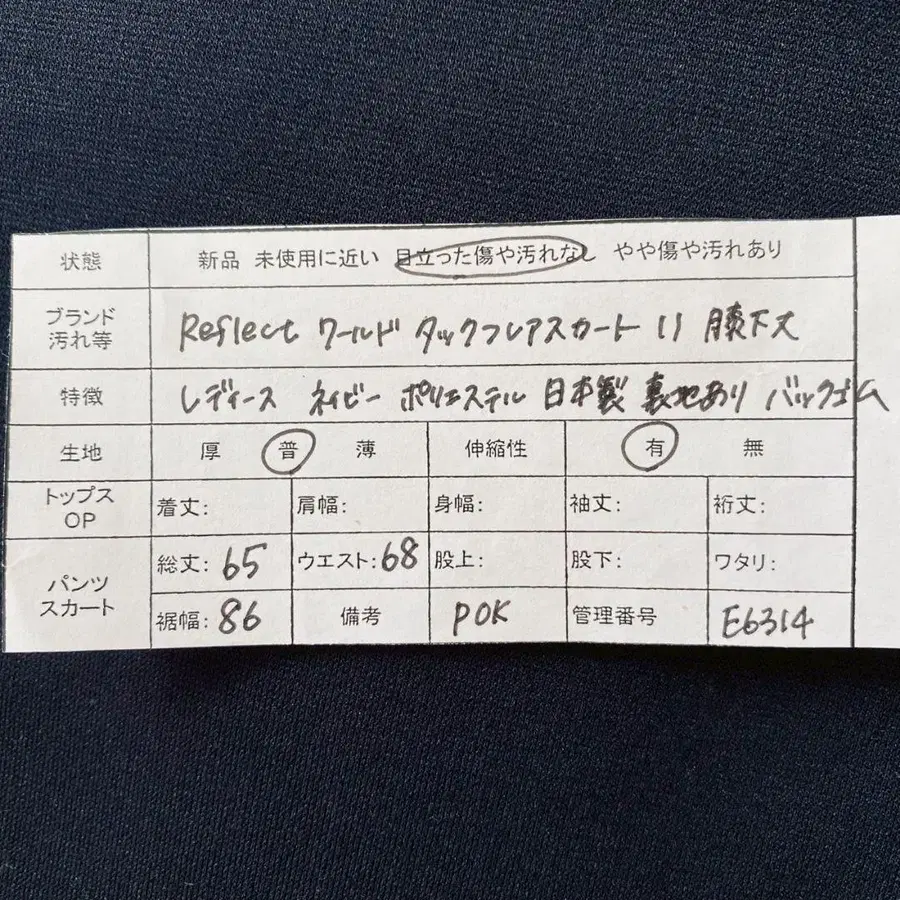 状態 新品 未使用に近い 目立った傷や汚れなし やや傷や汚れあり
ブランド
汚れ等 Reflect ワールド タックフレアスカート 11 膝下丈
特徴 レディース ネイビー ポリエステル 日本製 裏地あり バックゴム
生地 厚 普 薄 伸縮性 有 無
トップス
OP 着丈: 肩幅: 身幅: 袖丈: 裄丈:
パンツ
スカート 総丈:65 ウエスト:68 股上: 股下: ワタリ:
裾幅:86 備考 POK 管理番号 E6314